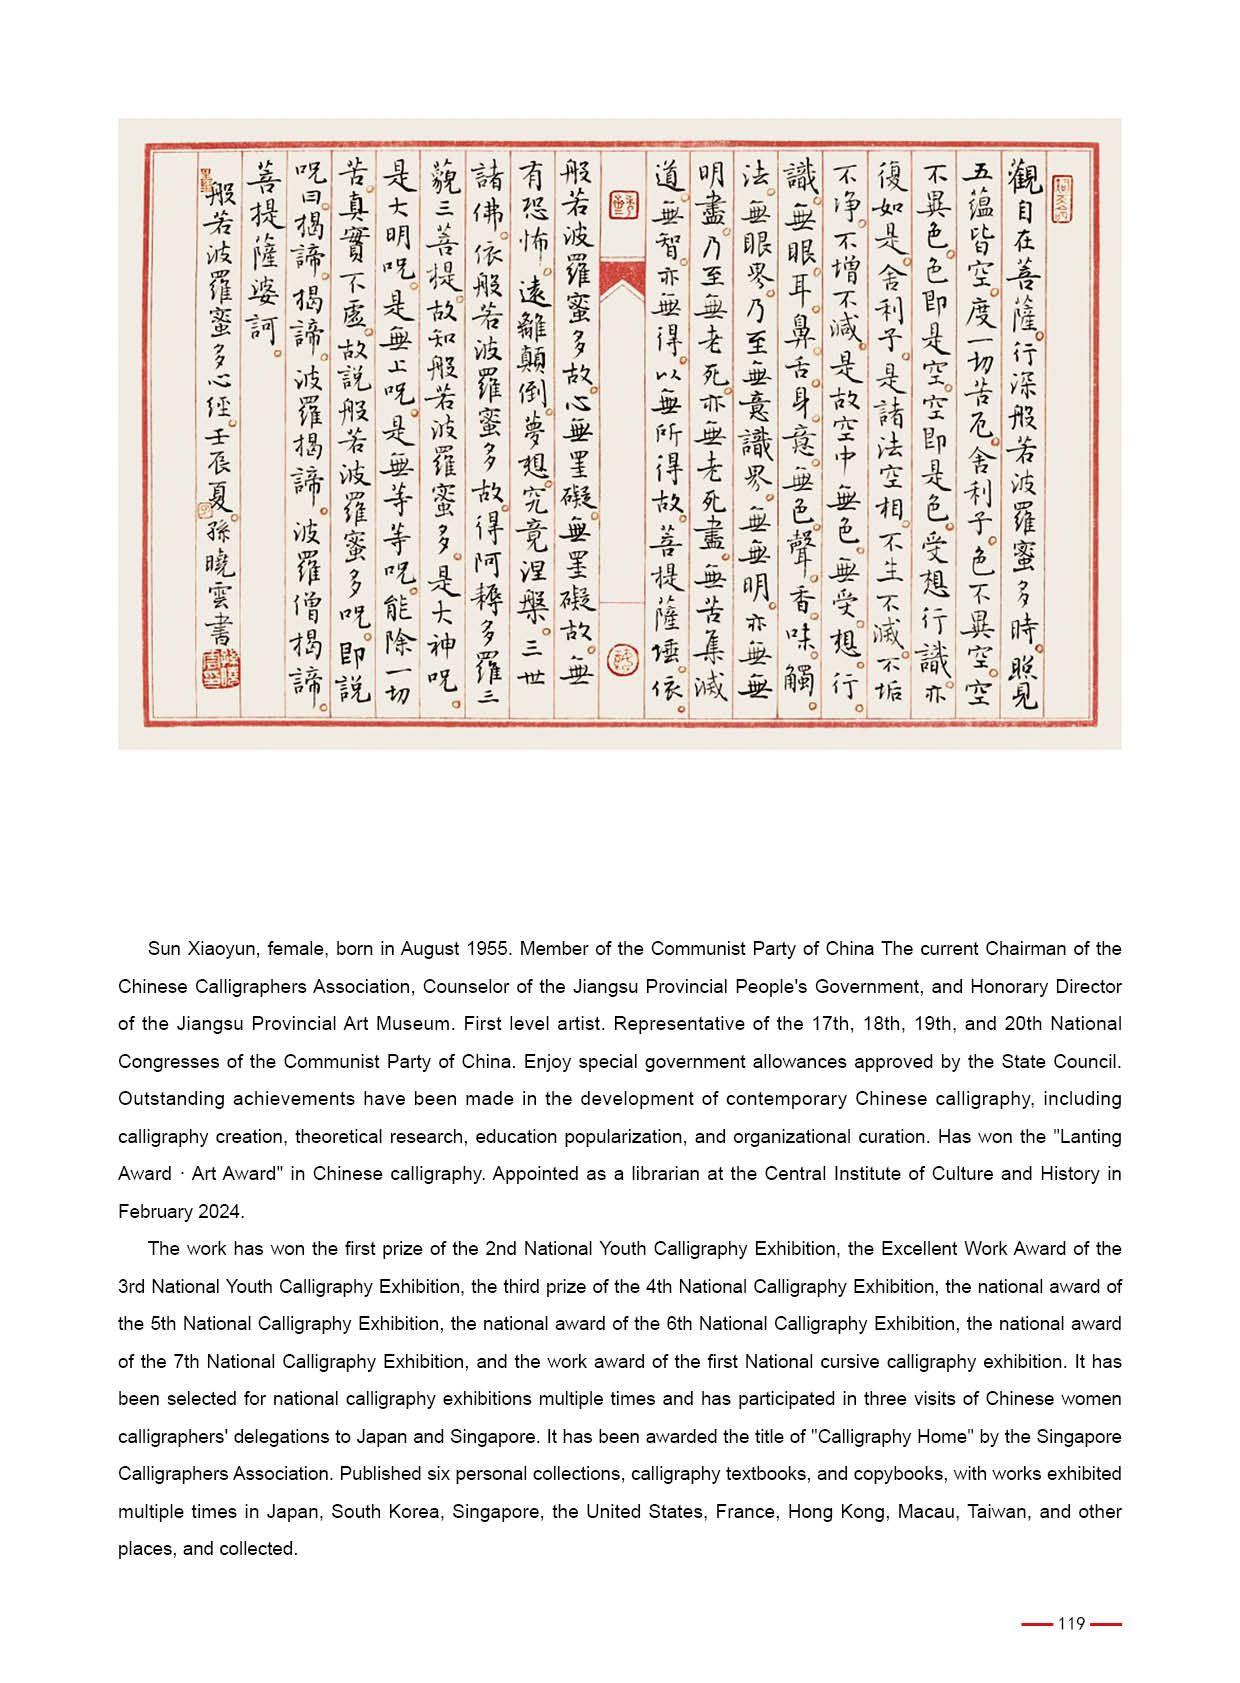 觀自在菩薩。行深般若波羅蜜多時。照見
五蘊皆空。度一切苦厄。舍利子。色不異空。空
不異色。色即是空。空即是色。受想行識。亦
復如是。舍利子。是諸法空相。不生不滅。不垢
不淨。不增不減。是故空中。無色。無受。想。行。
識。無眼耳。鼻。舌。身。意。無色。聲。香。味。觸。
法。無眼界。乃至無意識界。無無明。亦無無
明盡。乃至無老死。亦無老死盡。無苦集滅
道。無智。亦無得。以無所得故。菩提薩埵。依。
般若波羅蜜多故。心無罣礙。無罣礙故。無
有恐怖。遠離顛倒。夢想。究竟涅槃。三世
諸佛。依般若波羅蜜多故。得阿耨多羅三
藐三菩提。故知般若波羅蜜多。是大神呪。
是大明呪。是無上呪。是無等等呪。能除一切
苦。真實不虛。故說般若波羅蜜多呪。即說
呪曰。揭諦。揭諦。波羅揭諦。波羅僧揭諦。
菩提薩婆訶。
般若波羅蜜多心經。壬辰夏。孫曉雲書
Sun Xiaoyun, female, born in August 1955. Member of the Communist Party of China The current Chairman of the
Chinese Calligraphers Association, Counselor of the Jiangsu Provincial People's Government, and Honorary Director
of the Jiangsu Provincial Art Museum. First level artist. Representative of the 17th, 18th, 19th, and 20th National
Congresses of the Communist Party of China. Enjoy special government allowances approved by the State Council.
Outstanding achievements have been made in the development of contemporary Chinese calligraphy, including
calligraphy creation, theoretical research, education popularization, and organizational curation. Has won the "Lanting
Award · Art Award" in Chinese calligraphy. Appointed as a librarian at the Central Institute of Culture and History in
February 2024.
The work has won the first prize of the 2nd National Youth Calligraphy Exhibition, the Excellent Work Award of the
3rd National Youth Calligraphy Exhibition, the third prize of the 4th National Calligraphy Exhibition, the national award of
the 5th National Calligraphy Exhibition, the national award of the 6th National Calligraphy Exhibition, the national award
of the 7th National Calligraphy Exhibition, and the work award of the first National cursive calligraphy exhibition. It has
been selected for national calligraphy exhibitions multiple times and has participated in three visits of Chinese women
calligraphers' delegations to Japan and Singapore. It has been awarded the title of "Calligraphy Home" by the Singapore
Calligraphers Association. Published six personal collections, calligraphy textbooks, and copybooks, with works exhibited
multiple times in Japan, South Korea, Singapore, the United States, France, Hong Kong, Macau, Taiwan, and other
places, and collected.
119